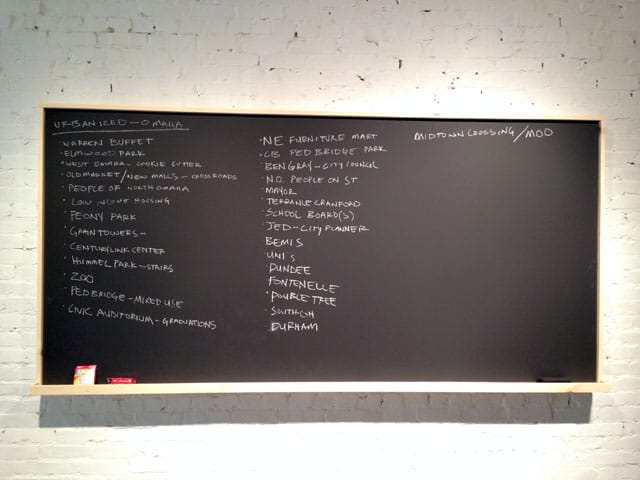 URBANIZED - OMAHA
· WARREN BUFFET
· ELMWOOD PARK
· WEST OMAHA - COOKIE CUTTER
· OLD MARKET / NEW MALLS - CROSSROADS
· PEOPLE OF NORTH OMAHA
· LOW INCOME HOUSING
· PEONY PARK
· TOWERS -
· CENTURYLINK CENTER
· HUMMEL PARK - STAIRS
· ZOO
· PED BRIDGE - MIXED USE
· CIVIC AUDITORIUM - GRADUATIONS
· NE FURNITURE MART
· CB PED BRIDGE PARK
· BEN GRAY - CITY COUNCIL
· N.O. PEOPLE ON ST
· MAYOR
· TERRANCE CRAWFORD
· SCHOOL BOARD(S)
· JED - CITY PLANNER
BEMIS
· UNI'S
· DUNDEE
FONTENELLE
· DOUBLE TREE
·
· DURHAM
MIDTOWN CROSSING / MOD